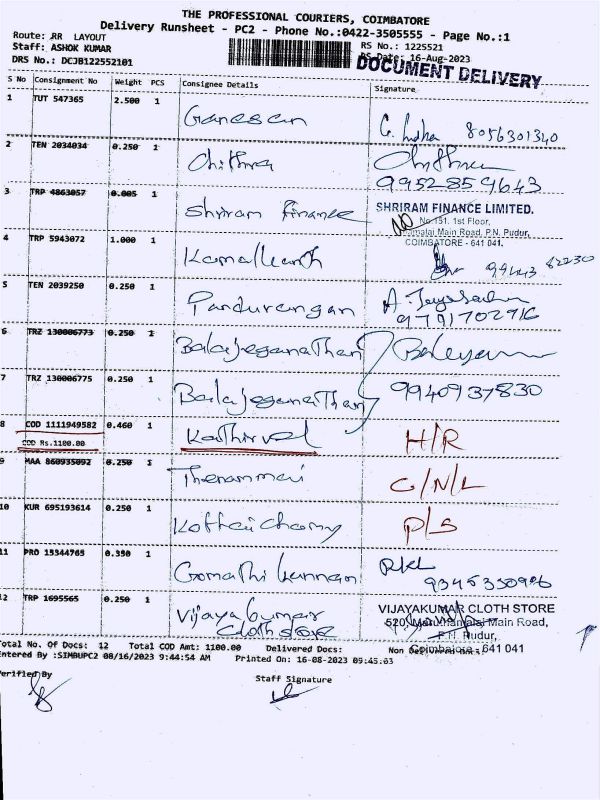 THE PROFESSIONAL COURIERS, COIMBATORE
Delivery Runsheet - PC2 - Phone No.:0422-3505555 - Page No.:1
Route: RR LAYOUT
RS No.: 1225521
Staff: ASHOK KUMAR
RS Date: 16-Aug-2023
DRS No.: DCJB122552101
DOCUMENT DELIVERY
S No Consignment No Weight PCS Consignee Details Signature
1 TUT 547365 2.500 1 Ganesan 8056301340
2 TEN 2034034 0.250 1 Chithra Chithra
9952859643
3 TRP 4863057 0.005 1 Shriram finance SHRIRAM FINANCE LIMITED.
No.151, 1st Floor,
Main Road, P.N. Pudur,
COIMBATORE - 641 041.
4 TRP 5943072 1.000 1 Kamalkanth 99443 82230
5 TEN 2039250 0.250 1 Pandurangan
9791702916
6 TRZ 130006773 0.250 1 Balajeganathan
7 TRZ 130006775 0.250 1 Balajeganathan 9940937830
8 COD 1111949582 0.460 1 Kathirvel H/R
COD Rs.1100.00
9 MAA 860935092 0.250 1 C/N/L
10 KUR 695193614 0.250 1 P/S
11 PRO 15344765 0.390 1 Gomathi kannan RKL
12 TRP 1695565 0.250 1 Vijayakumar
Cloth store
VIJAYAKUMAR CLOTH STORE
520, Maruthamalai Main Road,
P.N. Pudur,
Coimbatore - 641 041
Total No. Of Docs: 12 Total COD Amt: 1100.00 Delivered Docs: Non
Entered By :SIMBUPC2 08/16/2023 9:44:54 AM Printed On: 16-08-2023 09:45:03
Verified By
Staff Signature